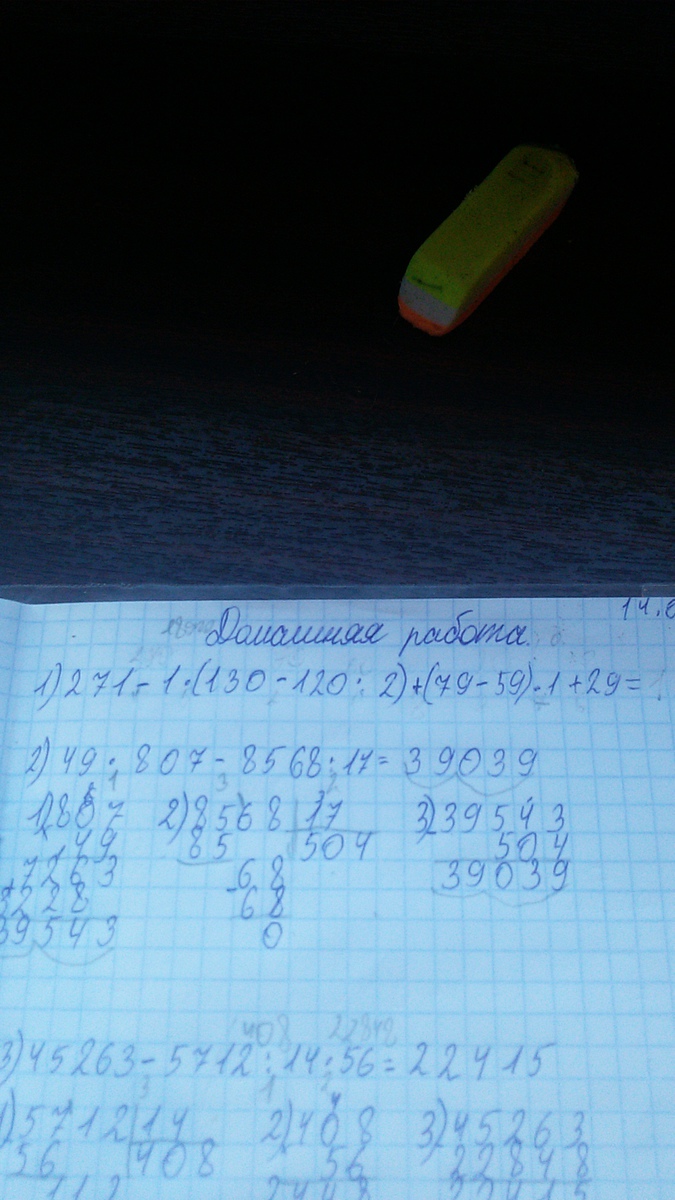 14.0
Домашняя работа
1) 271 - 1 · (130 - 120 : 2) + (79 - 59) · 1 + 29 =
2) 49 · 807 - 8568 : 17 = 39039
1) 807 2) 8568 17 3) 39543
49 85 504 504
7263 68 39039
3228 68
39543 0
408 22848
3) 45263 - 5712 : 14 · 56 = 22415
1) 5712 14 2) 408 3) 45263
56 408 56 22848
112 2448 22415